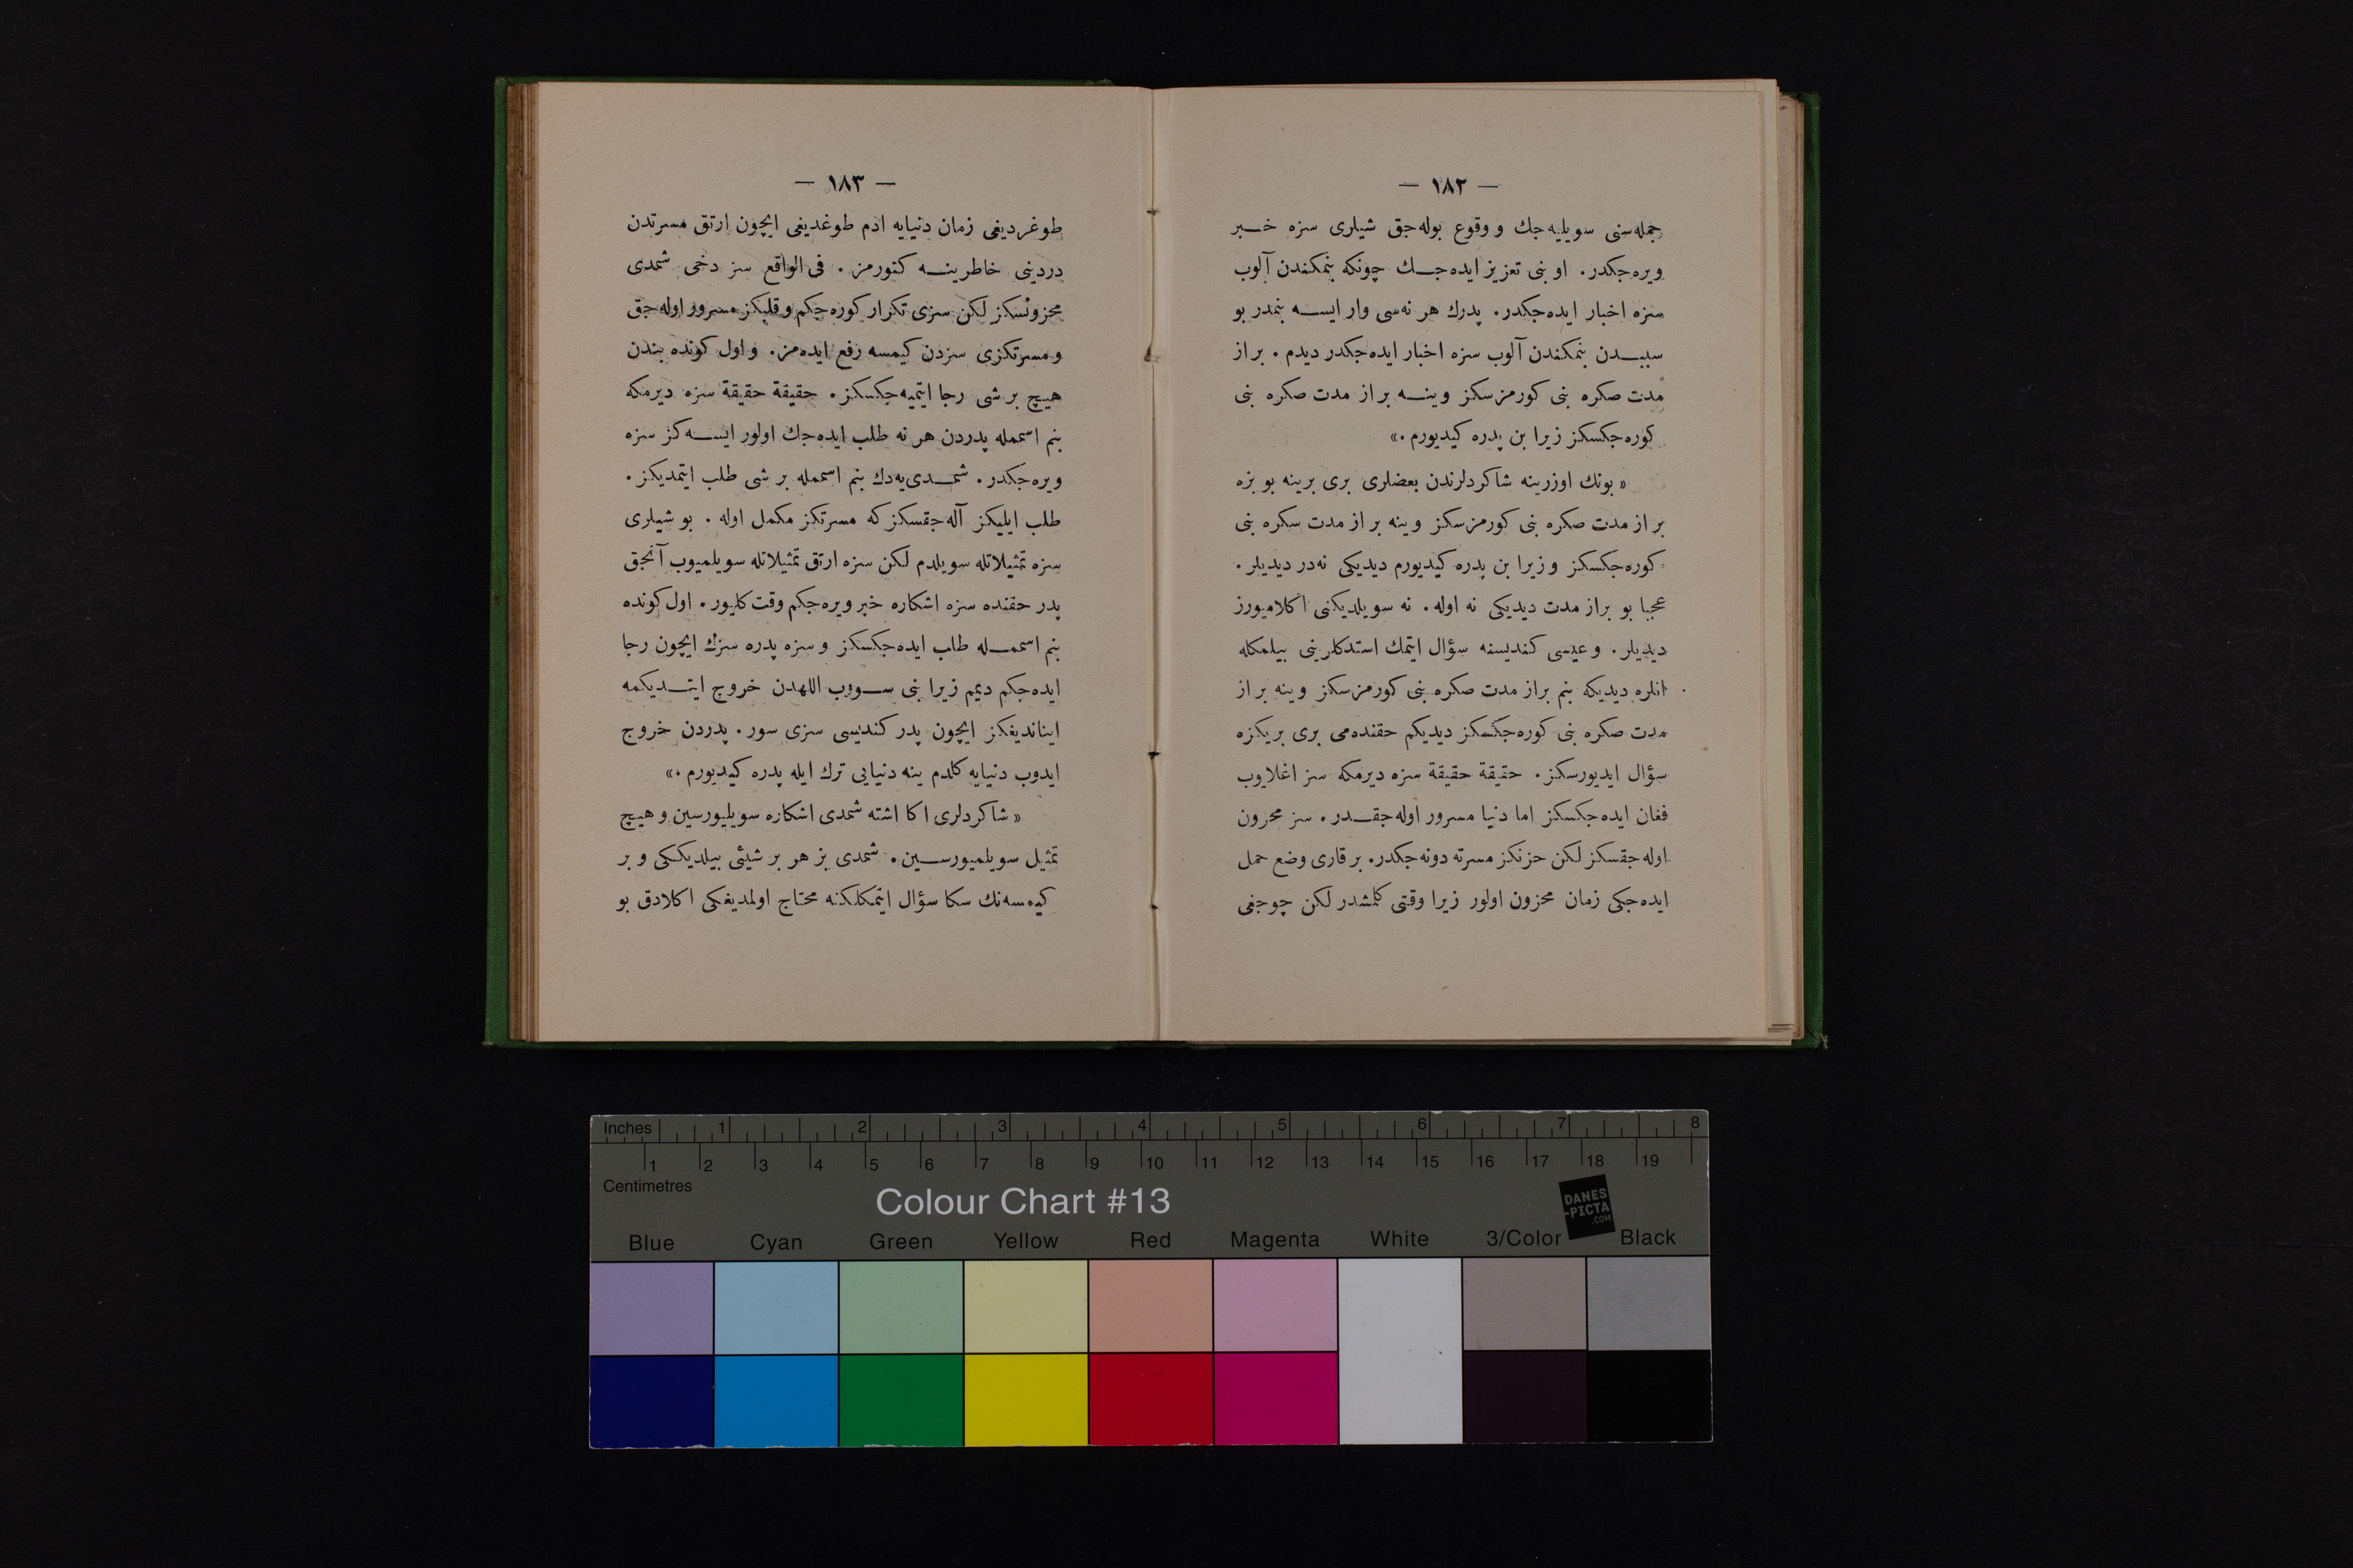 — ١٨٢ —
جمله‌سنی سویلیه‌جك و وقوع بوله‌جق شیلری سزه خـــبر
ویره‌جکدر. او بنی تعزیز ایده‌جـــك چونکه بنمکندن آلوب
سزه اخبار ایده‌جکدر. پدرك هر نه‌سی وار ایســـه بنمدر بو
سببـــدن بنمکندن آلوب سزه اخبار ایده‌جکدر دیدم . براز
مدت صکره بنی کورمزسکز وینـــه براز مدت صکره بنی
کوره‌جکسکز زیرا بن پدره کیدیورم .»
« بونك اوزرینه شاکردلرندن بعضلری بری برینه بو بزه
براز مدت صکره بنی کورمزسکز وینه براز مدت سکره بنی
کوره‌جکسکز و زیرا بن پدره کیدیورم دیدیکی نه‌در دیدیلر .
عجبا بو براز مدت دیدیکی نه اوله . نه سویلدیکنی اکلامیورز
دیدیلر . و عیسی کندیسنه سؤال ایتمك استدکلرینی بیلمکله
انلره دیدیکه بنم براز مدت صکره بنی کورمزسکز وینه براز
مدت صکره بنی کوره‌جکسکز دیدیکم حقنده‌می بری بریکزه
سؤال ایدیورسکز . حقیقة حقیقة سزه دیرمکه سز اغلایوب
فغان ایده‌جکسکز اما دنیا مسرور اوله‌جقـــدر . سز محزون
اوله‌جقسکز لکن حزنکز مسرته دونه‌جکدر. بر قاری وضع حمل
ایده‌جکی زمان محزون اولور زیرا وقتی کلمشدر لکن چوجغی
— ١٨٣ —
طوغردیغی زمان دنیایه ادم طوغدیغی ایچون ارتق مسرتدن
دردینی خاطرینـــه کتورمز . فی الواقع سز دخی شمدی
محزونسکز لکن سزی تکرار کوره‌جکم و قلبکز مسرور اوله‌جق
و مسرتکزی سزدن کیمسه رفع ایده‌مز . و اول کونده بندن
هیچ بر شی رجا ایتمیه‌جکسکز . حقیقة حقیقة سزه دیرمکه
بنم اسممله پدردن هر نه طلب ایده‌جك اولور ایســـه‌کز سزه
ویره‌جکدر . شمـــدی‌یه‌دك بنم اسممله بر شی طلب ایتمدیکز .
طلب ایلیکز آله‌جقسکز که مسرتکز مکمل اوله . بو شیلری
سزه تمثیلاتله سویلدم لکن سزه ارتق تمثیلاتله سویلمیوب آنجق
پدر حقنده سزه اشکاره خبر ویره‌جکم وقت کلیور . اول کونده
بنم اسممـــله طلب ایده‌جکسکز و سزه پدره سزك ایچون رجا
ایده‌جکم دیمم زیرا بنی ســـووب اللهدن خروج ایتـــدیکمه
ایناندیغکز ایچون پدر کندیسی سزی سور . پدردن خروج
ایدوب دنیایه کلدم ینه دنیایی ترك ایله پدره کیدیورم .»
« شاکردلری اکا اشته شمدی اشکاره سویلیورسین و هیچ
تمثیل سویلمیورســـین . شمدی بز هر بر شیئی بیلدیککی و بر
کیمسه‌نك سکا سؤال ایتمکلکنه محتاج اولمدیغکی اکلادق بو
Inches 1 2 3 4 5 6 7 8
1 2 3 4 5 6 7 8 9 10 11 12 13 14 15 16 17 18 19
Centimetres
Colour Chart #13
DANES
-PICTA
.COM
Blue Cyan Green Yellow Red Magenta White 3/Color Black